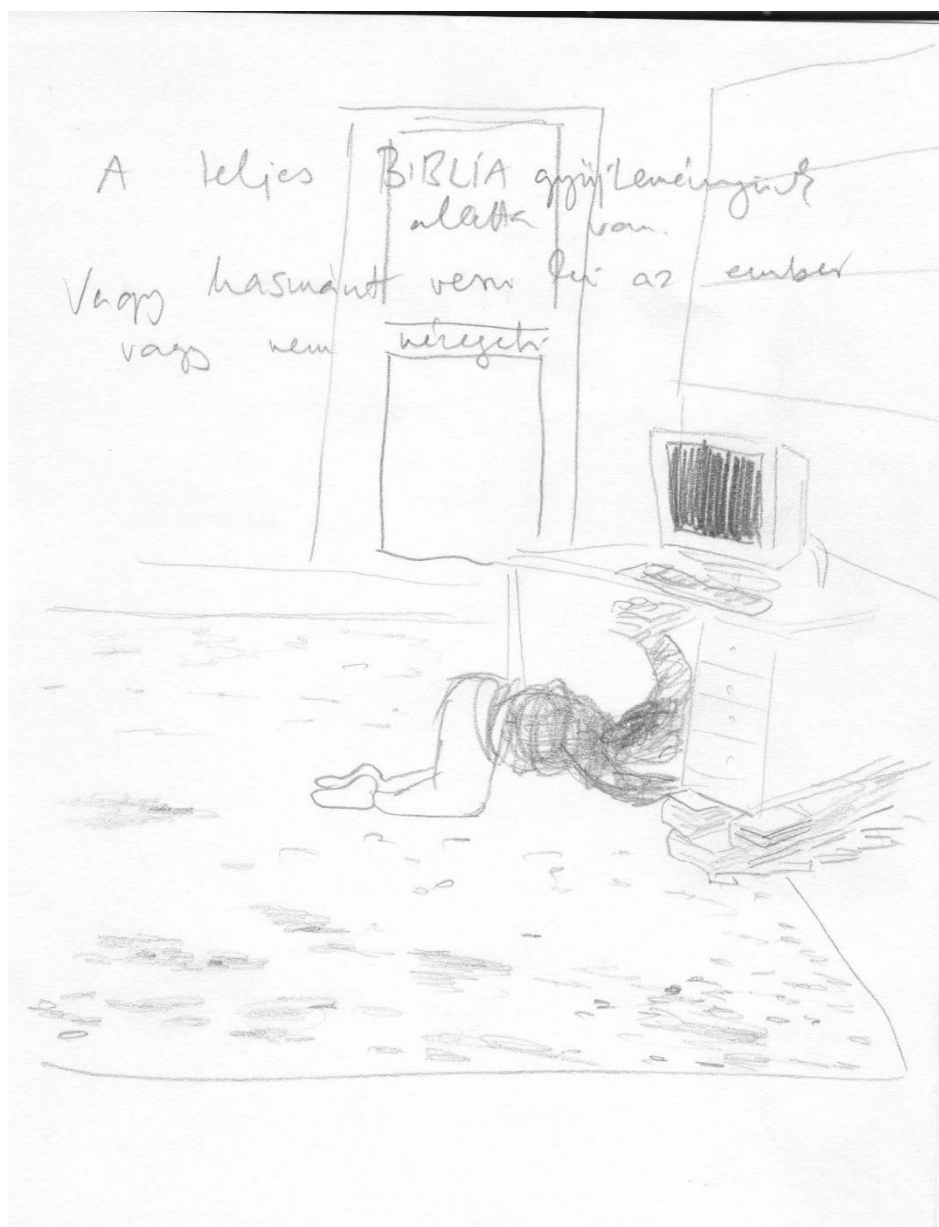 A teljes BIBLIA gyűjteményünk
alatta van.
Vagy hasmánt veszi ki az ember
vagy nem nézegeti